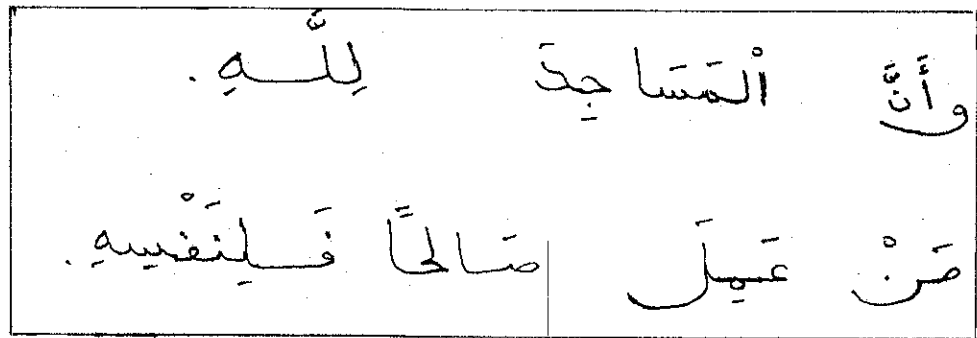 وَأَنَّ الْمَسَاجِدَ لِلَّهِ.
مَنْ عَمِلَ صَالِحًا فَلِنَفْسِهِ.